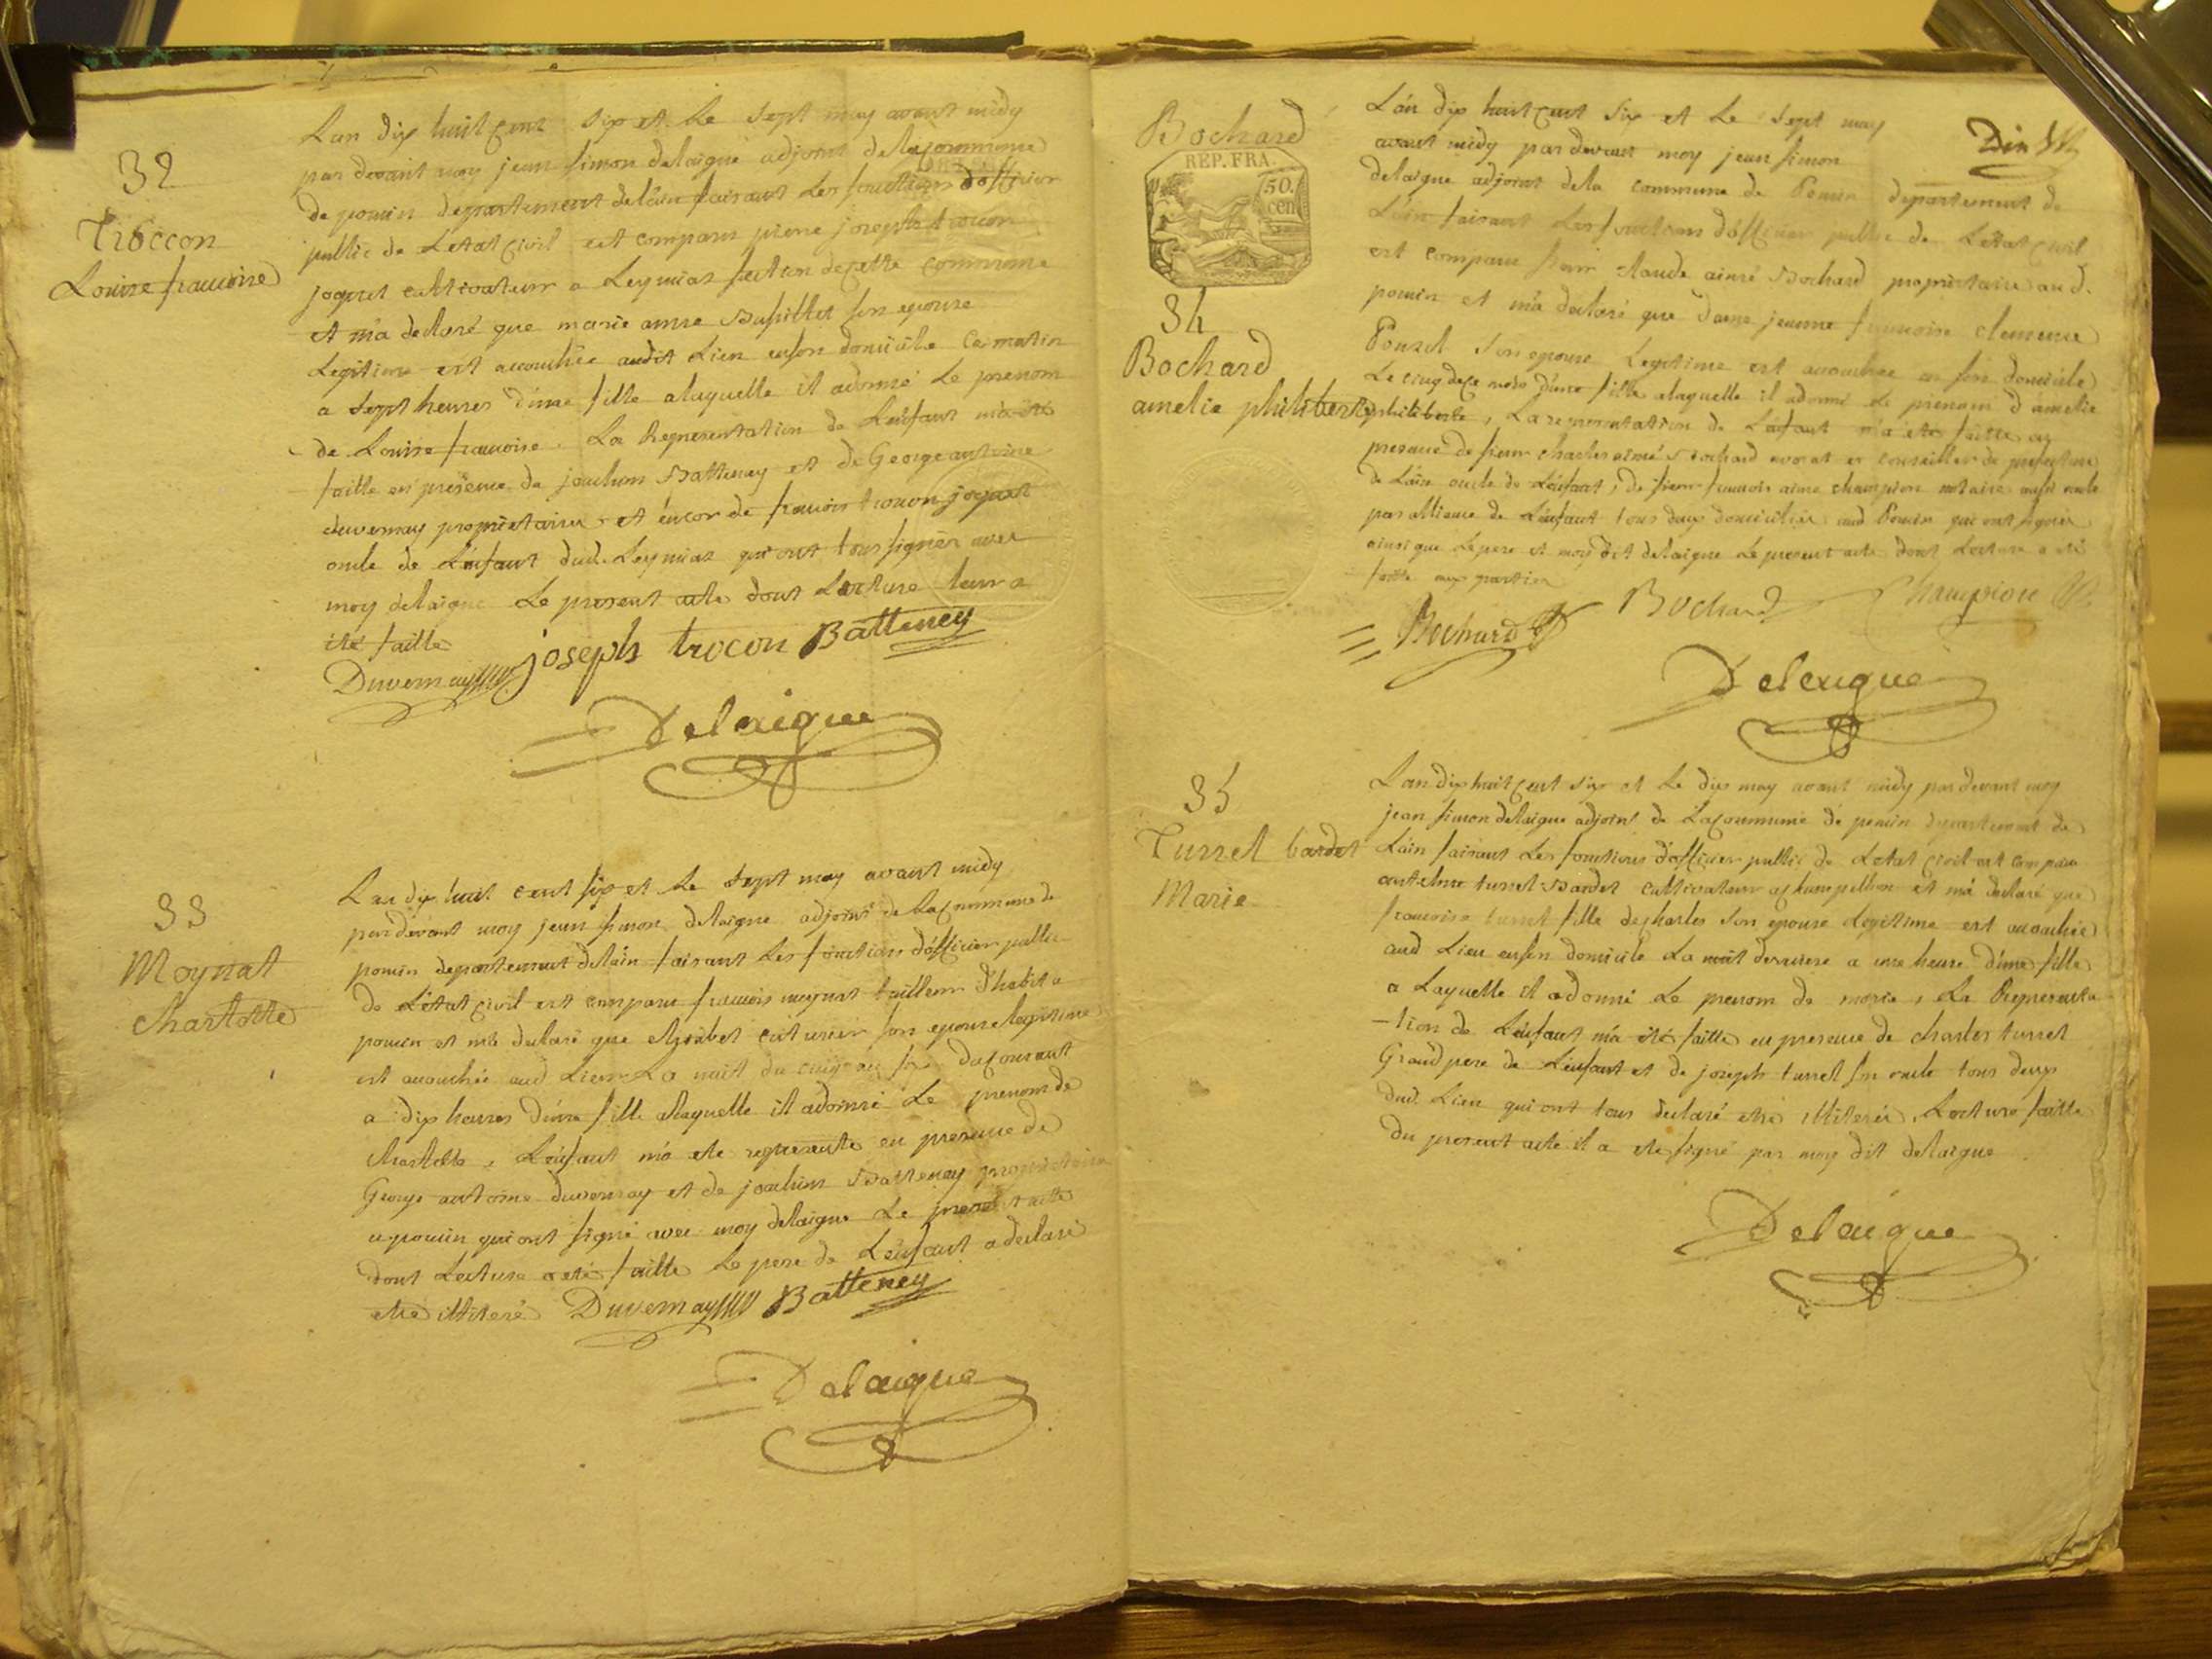 32
Troccon
Louise francoise
Lan dix huit cent six et le sept may avant midy
par devant moy jean simon delaigue adjoint de la commune
de poncin departement de lain faisant les fonctions dofficier
public de Letat civil est comparu pierre joseph trocon
joguet cultivateur a Leymiaz section de cette commune
et m'a declaré que marie anne son epouse
Legitime est accouchée audit Lieu en son domicile ce matin
a sept heures d'une fille a laquelle il a donné Le prenom
de Louise francoise. La Representation de Lenfant m'a été
faitte en presence de joachim Batteney et de George antoine
duvernay proprietaires et encor de francois trocon joguet
oncle de Lenfant dud. Leymiaz qui ont tous signés avec
moy delaigue Le present acte dont Lecture leur a
été faitte
Duvernay joseph trocon Batteney
Delaigue
33
Moynat
charlotte
Lan dix huit cent six et le sept may avant midy
par devant moy jean simon delaigue adjoint de la commune de
poncin departement de lain faisant les fonctions d'officier public
de Létat civil est comparu francois moynat tailleur d'habit a
poncin et m'a declaré que son epouse legitime
est accouchée aud. Lieu La nuit du cinq au six du courant
a dix heures d'une fille a laquelle il a donné Le prenom de
charlotte, Lenfant m'a été representé en presence de
George antoine duvernay et de joachim Batteney proprietaires
a poncin qui ont signé avec moy delaigue Le present acte
dont Lecture a eté faitte Le pere de Lenfant a declaré
etre illiteré Duvernay Batteney
Delaigue
Bochard
REP. FRA.
50.
cen
34
Bochard
amelie philiberte
L'an dix huit cent six et le sept may
avant midy par devant moy jean simon
delaigue adjoint dela commune de Poncin departement de
Lain faisant les fonctions d'officier public de Letat civil
est comparu sieur claude aimé Bochard proprietaire aud.
poncin et m'a declaré que Dame jeanne francoise clemence
son epouse Legitime est accouchée en son domicile
Le cinq de ce mois d'une fille a laquelle il a donné le prenom d'amelie
philiberte, La representation de Lenfant m'a été faitte en
presence de sieur charles aimé Bochard avocat et conseiller de prefecture
de Lain oncle de Lenfant, de sieur francois aime champion notaire aussi oncle
par alliance de Lenfant tous deux domiciliés aud. Poncin qui ont signés
ainsi que Le pere et moy dit delaigue Le present acte dont Lecture a été
faitte aux parties
Bochard Bochard Champion
Delaigue
35
Turrel bardet
Marie
Lan dix huit cent six et le dix may avant midy par devant moy
jean simon delaigue adjoint de La commune de poncin departement de
Lain faisant Les fonctions d'officier public de Letat civil est comparu
antelme turrel Bardet cultivateur a et m'a declaré que
francoise turrel fille de charles son epouse Legitime est accouchée
aud Lieu en son domicile La nuit derniere a une heure d'une fille
a Laquelle il a donné Le prenom de marie, La Representa
-tion de Lenfant m'a été faitte en presence de charles turrel
Grand pere de Lenfant et de joseph turrel son oncle tous deux
dud. Lieu qui ont tous declaré etre illiterés, Lecture faitte
du present acte il a ete signé par moy dit delaigue
Delaigue